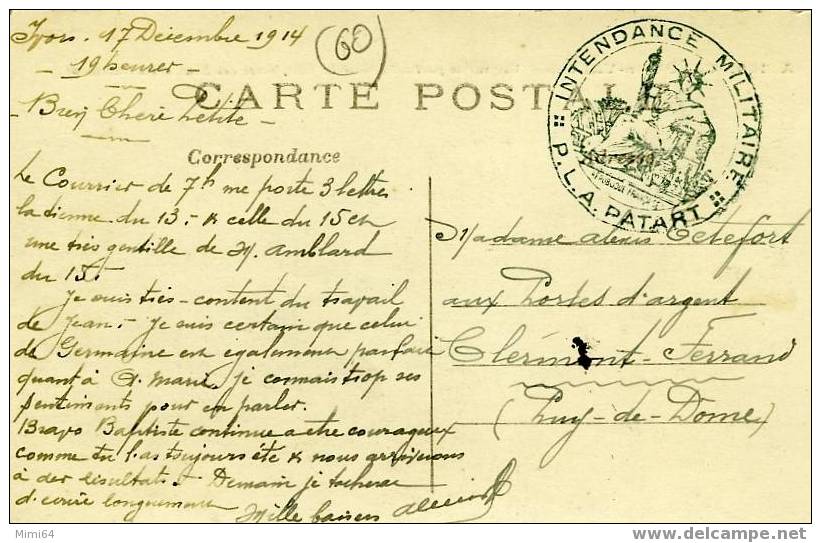 Lyon. 17 Décembre 1914
- 19 heures -
- Bien Chère petite -
60
CARTE POSTALE
Correspondance
Adresse
INTENDANCE MILITAIRE
P.L.A. PATART
Le Courrier de 7h me porte 3 lettres
la tienne du 13. - & celle du 15 &
une très gentille de M. Amblard
du 15.
Je suis très-content du travail
de Jean. - Je suis certain que celui
de Germaine est également parfait
quant à A. Marie. je connais trop ses
sentiments pour en parler.
Bravo Baptiste continue a être courageux
comme tu l'as toujours été & nous arriverons
à des résultats. - Demain je tacherai
d'écrire longuement
Mille baisers
Madame Alexis
aux Portes d'argent
Clérmont-Ferrand
(Puy-de-Dôme)
Mimi64
delcampe.net